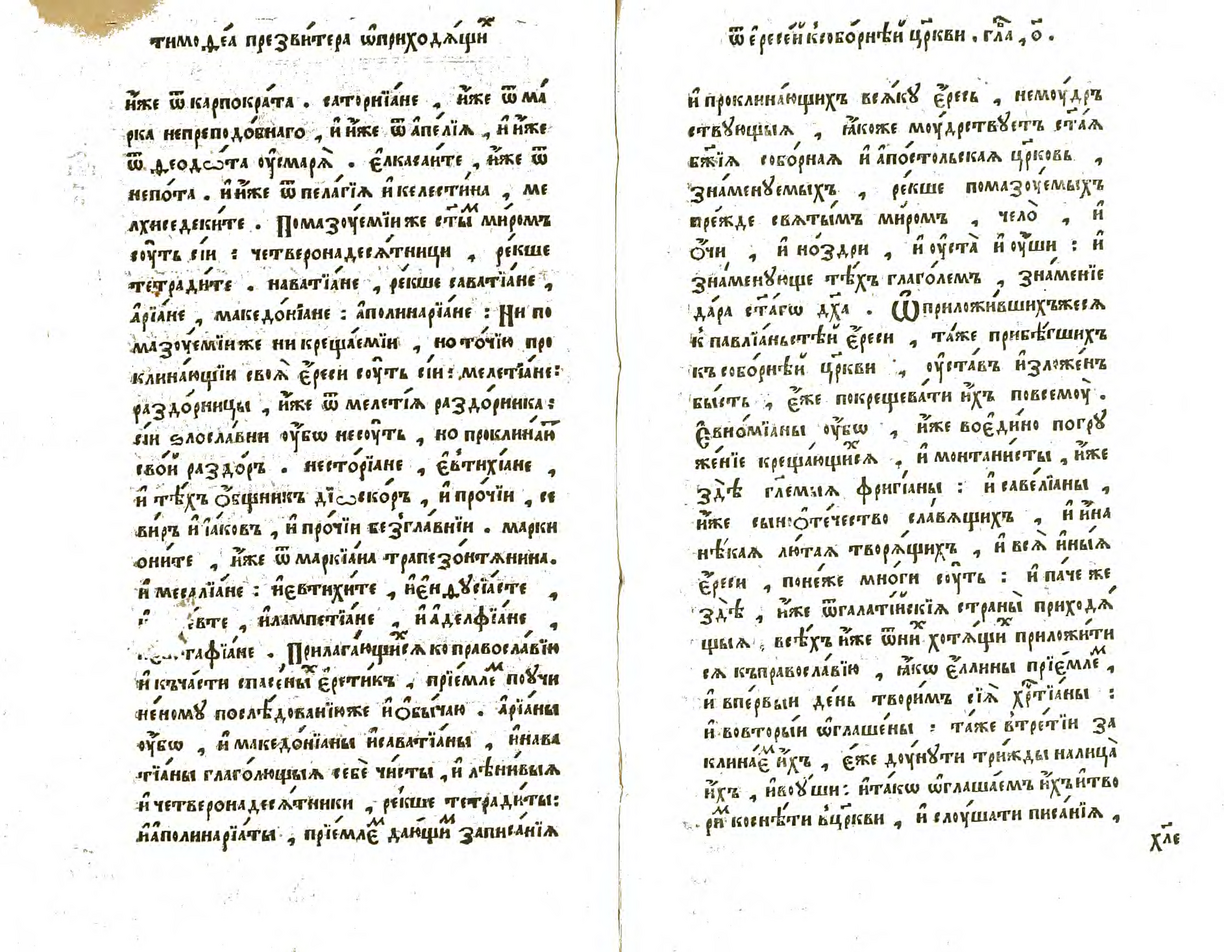 тимоѳеа презвитера ѡприходѧ́щиⷯ
и҆́же ѿ карпокра́та . саторнїа́не , и҆́же ѿ ма́
рка непреподо́бнаго , и҆ и҆́же ѿ а҆пе́лїѧ , и҆ и҆́же
ѿ ѳеодѡ́та оу҆смарѧ̀ . є҆лкасаи́те , и҆́же ѿ
непо́та . и҆ и҆́же ѿ пела́гїѧ и҆ келести́на , ме
лхиседеки́те . Помазоуе́мїи же ст҃ыⷨ ми́ромъ
соу́ть сїи : четверонадесѧ́тници , ре́кше
тетради́те . наватїа́не , ре́кше саватїа́не ,
а҆рїа́не , македонїа́не : а҆полинарїа́не : Ни по
мазоуе́мїи же ни креща́емїи , но то́чїю про
клина́ющїи своѧ̀ є҆́реси соу́ть сїи : мелетїа́не :
раздо́рницы , и҆́же ѿ меле́тїѧ раздо́рника :
сїи ѕлосла́вни оу҆́бѡ несоу́ть , но проклина́ю
свой раздо́ръ . несторїа́не , є҆ѵтихїа́не ,
и҆ тѣ́хъ ѻ҆́бщникъ дїѡ́скоръ , и҆ про́чїи , се
ви́ръ и҆ і҆а́ковъ , и҆ про́чїи безгла́внїи . марки
они́те , и҆́же ѿ маркїа́на трапезо́нтѧнина.
и҆ месалїа́не : и҆ є҆втихи́те , и҆ є҆нѳусїа́сте ,
є҆́вте , и҆ лампетїа́не , и҆ а҆делфїа́не ,
тафїа́не . Прилага́ющиⷯсѧ ко правосла́вїю
и҆ къ ча́сти спасе́ныⷯ є҆рети́къ , прїе́млеⷨ поу́чи
не́ному послѣ́дованїю же и҆ ѻ҆бы́чаю . а҆рїа́ны
оу҆́бѡ , и҆ македо́нїаны и҆ саватїа́ны , и҆ нава
тїа́ны глаго́лющыѧ себѐ чи́сты , и҆ лѣни́выѧ
и҆ четверонадесѧ́тники , ре́кше тетради́ты :
и҆ а҆полинарїа́ты , прїе́млеⷨ даю́щиⷨ записа́нїѧ
ѿ є҆ресе́й к собо́рнѣй цр҃кви . гла҃ , о҃ .
и҆ проклина́ющихъ всѧ́ку є҆́ресь , немоу́дръ
ствующыѧ , ꙗ҆́коже моу́дрствуетъ ст҃а́ѧ
бж҃їѧ собо́рнаѧ и҆ а҆по́стольскаѧ цр҃ковь ,
зна́менуемыхъ , ре́кше помазоу́емыхъ
пре́жде свѧты́мъ ми́ромъ , чело̀ , и҆
ѻ҆́чи , и҆ но́здри , и҆ оу҆ста̀ и҆ оу҆́ши : и҆
зна́менующе тѣ́хъ глаго́лемъ , зна́менїе
да́ра ст҃а́гѡ дх҃а . Ѿприложи́вшихъжесѧ
к павлїа́ньстѣй є҆́реси , та́же прибѣ́гшихъ
къ собо́рнѣй цр҃кви , оу҆ста́въ и҆зло́женъ
бы́сть , є҆́же покрещева́ти и҆́хъ повсемоу̀ .
Є҆вномїа́ны оу҆́бѡ , и҆́же воє҆ди́но погру
же́нїе креща́ющиⷯсѧ , и҆ монтани́сты , и҆́же
здѣ̀ гл҃емыѧ фригїа́ны : и҆ савелїа́ны ,
и҆́же сынѻ҆те́чество сла́вѧщихъ , и҆ и҆́на
нѣ́каѧ лю́таѧ творѧ́щихъ , и҆ всѧ̀ и҆́ныѧ
є҆́реси , поне́же мно́ги соу́ть : и҆ па́че же
здѣ̀ , и҆́же ѿгалаті́йскїѧ страны̀ приходѧ́
щыѧ , всѣ́хъ и҆́же ѿниⷯ хотѧ́щиⷯ приложи́ти
сѧ къ правосла́вїю , ꙗ҆́кѡ є҆́ллины прїе́млеⷨ ,
и҆ впе́рвыи де́нь твори́мъ сїѧ̀ хрⷭ҇тїа́ны :
и҆ вовторы́и ѡ҆глаше́ны : та́же втре́тїи за
клина́єⷨ и҆́хъ , є҆́же доу́нути три́жды налица̀
и҆́хъ , и҆ воу́ши : и҆ та́кѡ ѡ҆глаша́емъ и҆́хъ и҆ тво
риⷨ косне́ти вцр҃кви , и҆ слоу́шати писа́нїѧ ,
хл҃е